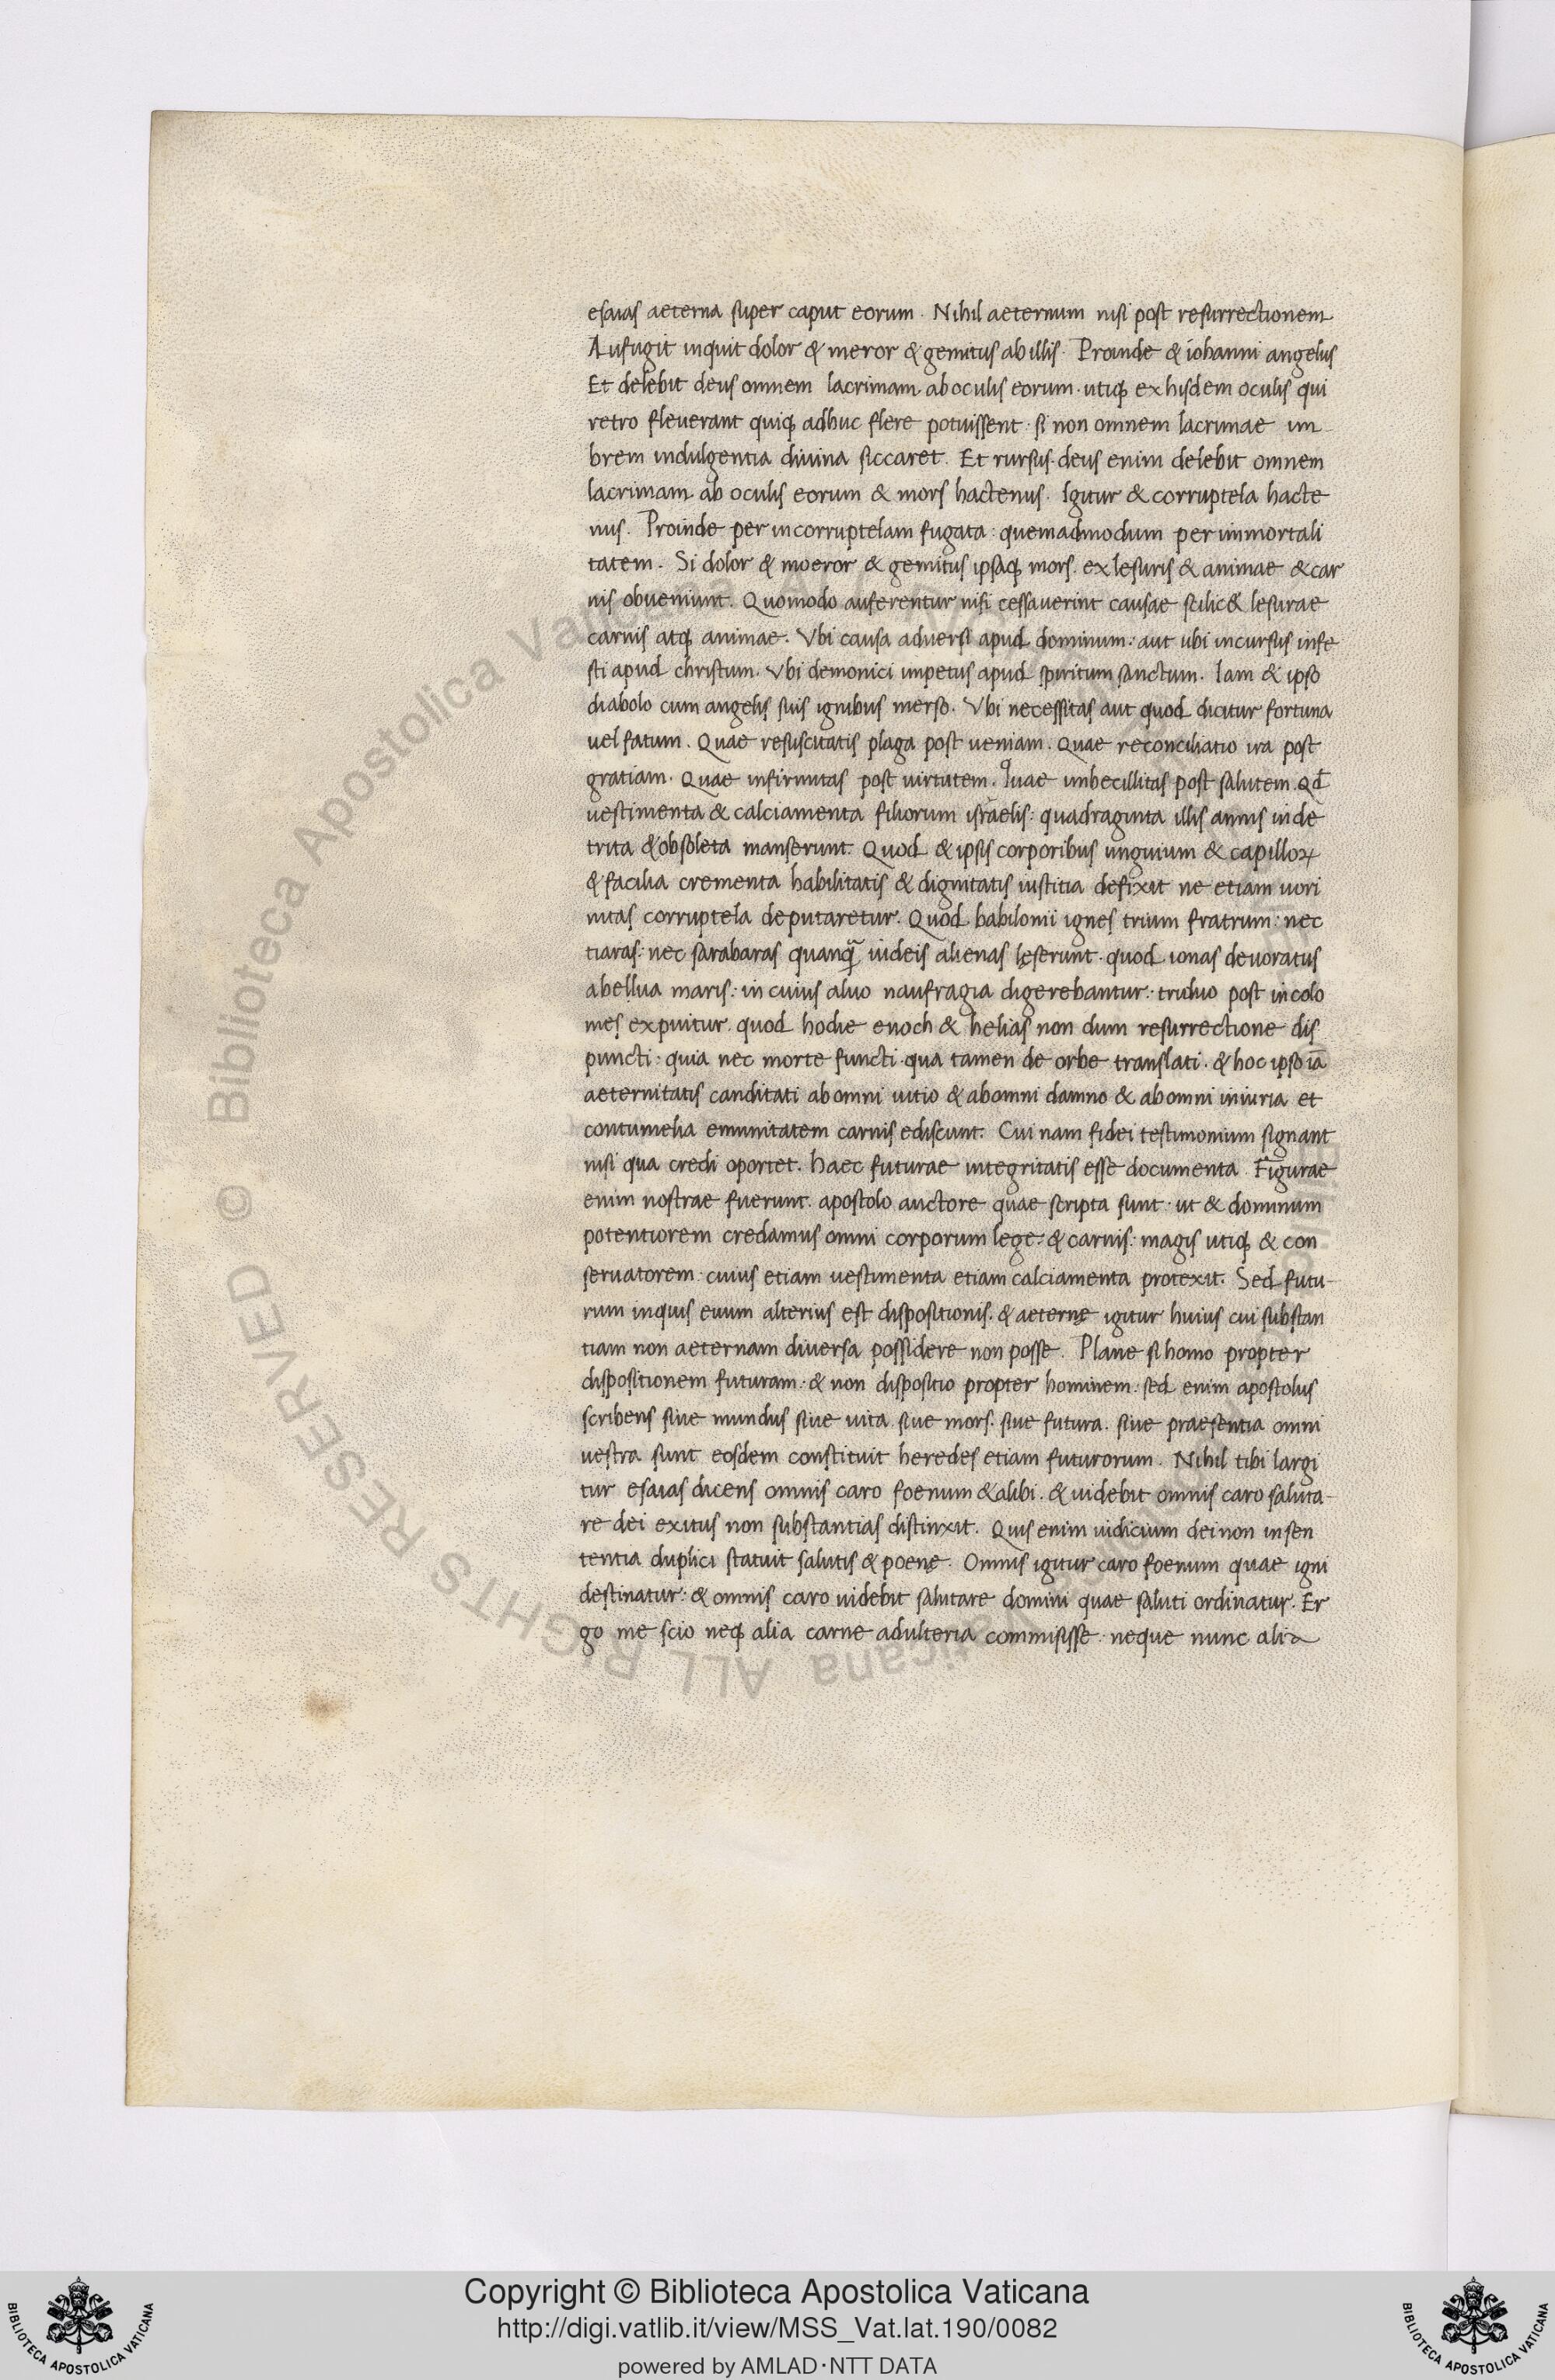 esaias aeterna super caput eorum. Nihil aeternum nisi post resurrectionem
Aufugit inquit dolor & meror & gemitus ab illis. Proinde & iohanni angelus
Et delebit deus omnem lacrimam ab oculis eorum. utiq; ex hisdem oculis qui
retro fleverant quiq; adhuc flere potuissent. si non omnem lacrimae im-
brem indulgentia divina siccaret. Et rursus. deus enim delebit omnem
lacrimam ab oculis eorum & mors hactenus. Igitur & corruptela hacte
nus. Proinde per incorruptelam fugata: quemadmodum per immortali
tatem. Si dolor & moeror & gemitus ipsaq; mors. ex lesuris & animae & car
nis obveniunt. Quomodo auferentur nisi cessaverint causae scilic& lesurae
carnis atq; animae. Vbi causa adversi apud dominum: aut ubi incursus infe
sti apud christum. Vbi demonici impetus apud spiritum sanctum. Iam & ipso
diabolo cum angelis suis ignibus merso. Vbi necessitas aut quod dicitur fortuna
uel fatum. Quae resuscitatis plaga post ueniam. Quae reconciliatio ira post
gratiam. Quae infirmitas post uirtutem. Quae imbecillitas post salutem. Qđ
uestimenta & calciamenta filiorum israelis: quadraginta illis annis inde
trita & obsoleta manserunt. Quod & ipsis corporibus unguium & capilloꝝ
& facilia crementa habilitatis & dignitatis iustitia defixit ne etiam uori
nitas corruptela deputaretur. Quod babilonii ignes trium fratrum: nec
tiaras: nec sarabaras quanq̃ iudeis alienas lęserunt. quod ionas devoratus
a bellua maris: in cuius aluo naufragia digerebantur: triduo post incolo
mes expuitur. quod hodie enoch & helias non dum resurrectione dis
puncti: quia nec morte functi. qua tamen de orbe translati. & hoc ipso iā
aeternitatis canditati ab omni uitio & ab omni damno & ab omni iniuria et
contumelia emunitatem carnis ediscunt. Cui nam fidei testimonium signant
nisi qua credi oportet. haec futurae integritatis esse documenta. Figurae
enim nostrae fuerunt. apostolo auctore quae scripta sunt. ut & dominum
potentiorem credamus omni corporum lege: & carnis: magis utiq; & con
seruatorem: cuius etiam uestimenta etiam calciamenta protexit. Sed futu-
rum inquis euum alterius est dispositionis. & aeternę igitur huius cui substan
tiam non aeternam diversa possidere non posse. Plane si homo propter
dispositionem futuram: & non dispositio propter hominem: sed enim apostolus
scribens siue mundus siue uita siue mors. siue futura. siue praesentia omni
uestra sunt eosdem constituit heredes etiam futurorum. Nihil tibi largi
tur esaias dicens omnis caro foenum & alibi. & uidebit omnis caro saluta-
re dei exitus non substantias distinxit. Quis enim iudicium dei non in sen
tentia duplici statuit salutis & poenę. Omnis igitur caro foenum quae igni
destinatur: & omnis caro uidebit salutare domini quae saluti ordinatur. Er
go me scio neq; alia carne adulteria commisisse. neque nunc alia
Copyright © Biblioteca Apostolica Vaticana
http://digi.vatlib.it/view/MSS_Vat.lat.190/0082
powered by AMLAD·NTT DATA
BIBLIOTECA APOSTOLICA VATICANA
BIBLIOTECA APOSTOLICA VATICANA
© Biblioteca Apostolica Vaticana ALL RIGHTS RESERVED